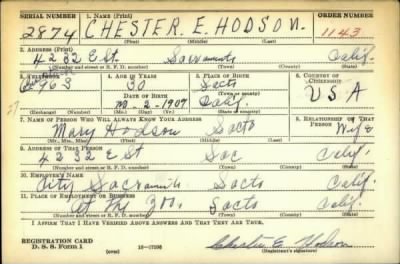 SERIAL NUMBER 1. NAME (Print) ORDER NUMBER
2874 CHESTER. E. HODSON. 1143
(First) (Middle) (Last)
2. ADDRESS (Print)
4232 E St. Sacramento Calif.
(Number and street or R. F. D. number) (Town) (County) (State)
3. TELEPHONE 4. AGE IN YEARS 5. PLACE OF BIRTH 6. COUNTRY OF CITIZENSHIP
30 Sacto
DATE OF BIRTH (Town or county)
2-1909 Calif. U S A
(Mo.) (Day) (Yr.) (State or country)
7. NAME OF PERSON WHO WILL ALWAYS KNOW YOUR ADDRESS 8. RELATIONSHIP OF THAT PERSON
Mary Hodson Sacto Wife
(Mr., Mrs., Miss) (First) (Middle) (Last)
9. ADDRESS OF THAT PERSON
4232 E St Sac Calif.
(Number and street or R. F. D. number) (Town) (County) (State)
10. EMPLOYER'S NAME
City Sacramento Sacto Calif.
11. PLACE OF EMPLOYMENT OR BUSINESS
At the Zoo. Sacto Calif.
(Number and street or R. F. D. number) (Town) (County) (State)
I AFFIRM THAT I HAVE VERIFIED ABOVE ANSWERS AND THAT THEY ARE TRUE.
REGISTRATION CARD
D. S. S. Form 1 (over) Chester E Hodson
(Registrant's signature)